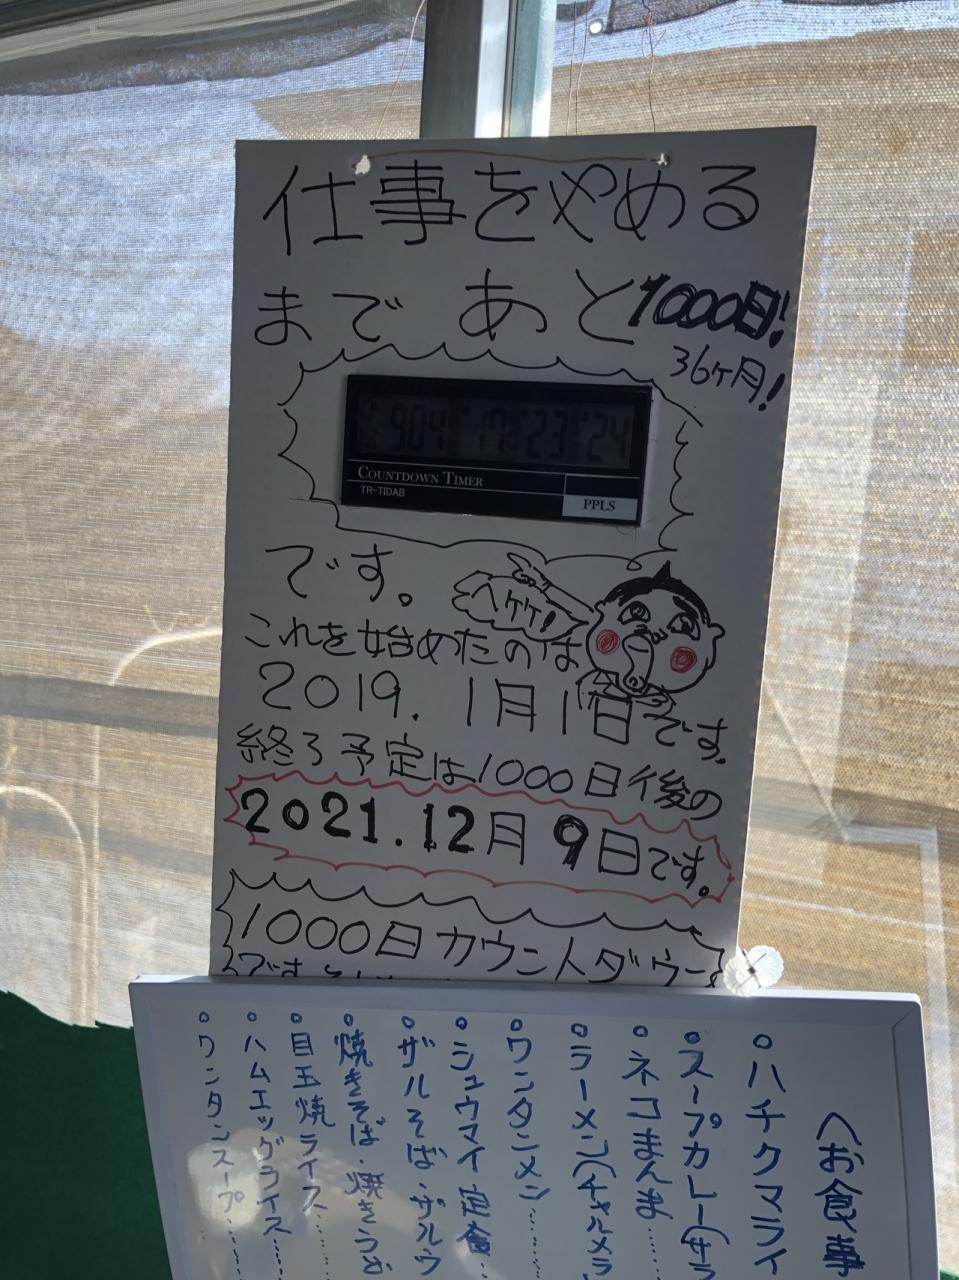 仕事をやめる
まで あと1000日!
36ヶ月!
904 17 23 24
COUNTDOWN TIMER
TR-TIDAB
PPLS
です。
ヘケケ!
これを始めたのは
2019. 1月1日です。
終了予定は1000日後の
2021.12月9日です。
1000日カウントダウン
お食事
ハチクマライ
スープカレー(サラ
ネコまんま……
ラーメン(チャルメラ
ワンタンメン……
シュウマイ定食…
ザルそば・ザルウ
焼きそば・焼きうど
目玉焼ライス……
ハムエッグライス……
ワンタンスープ……